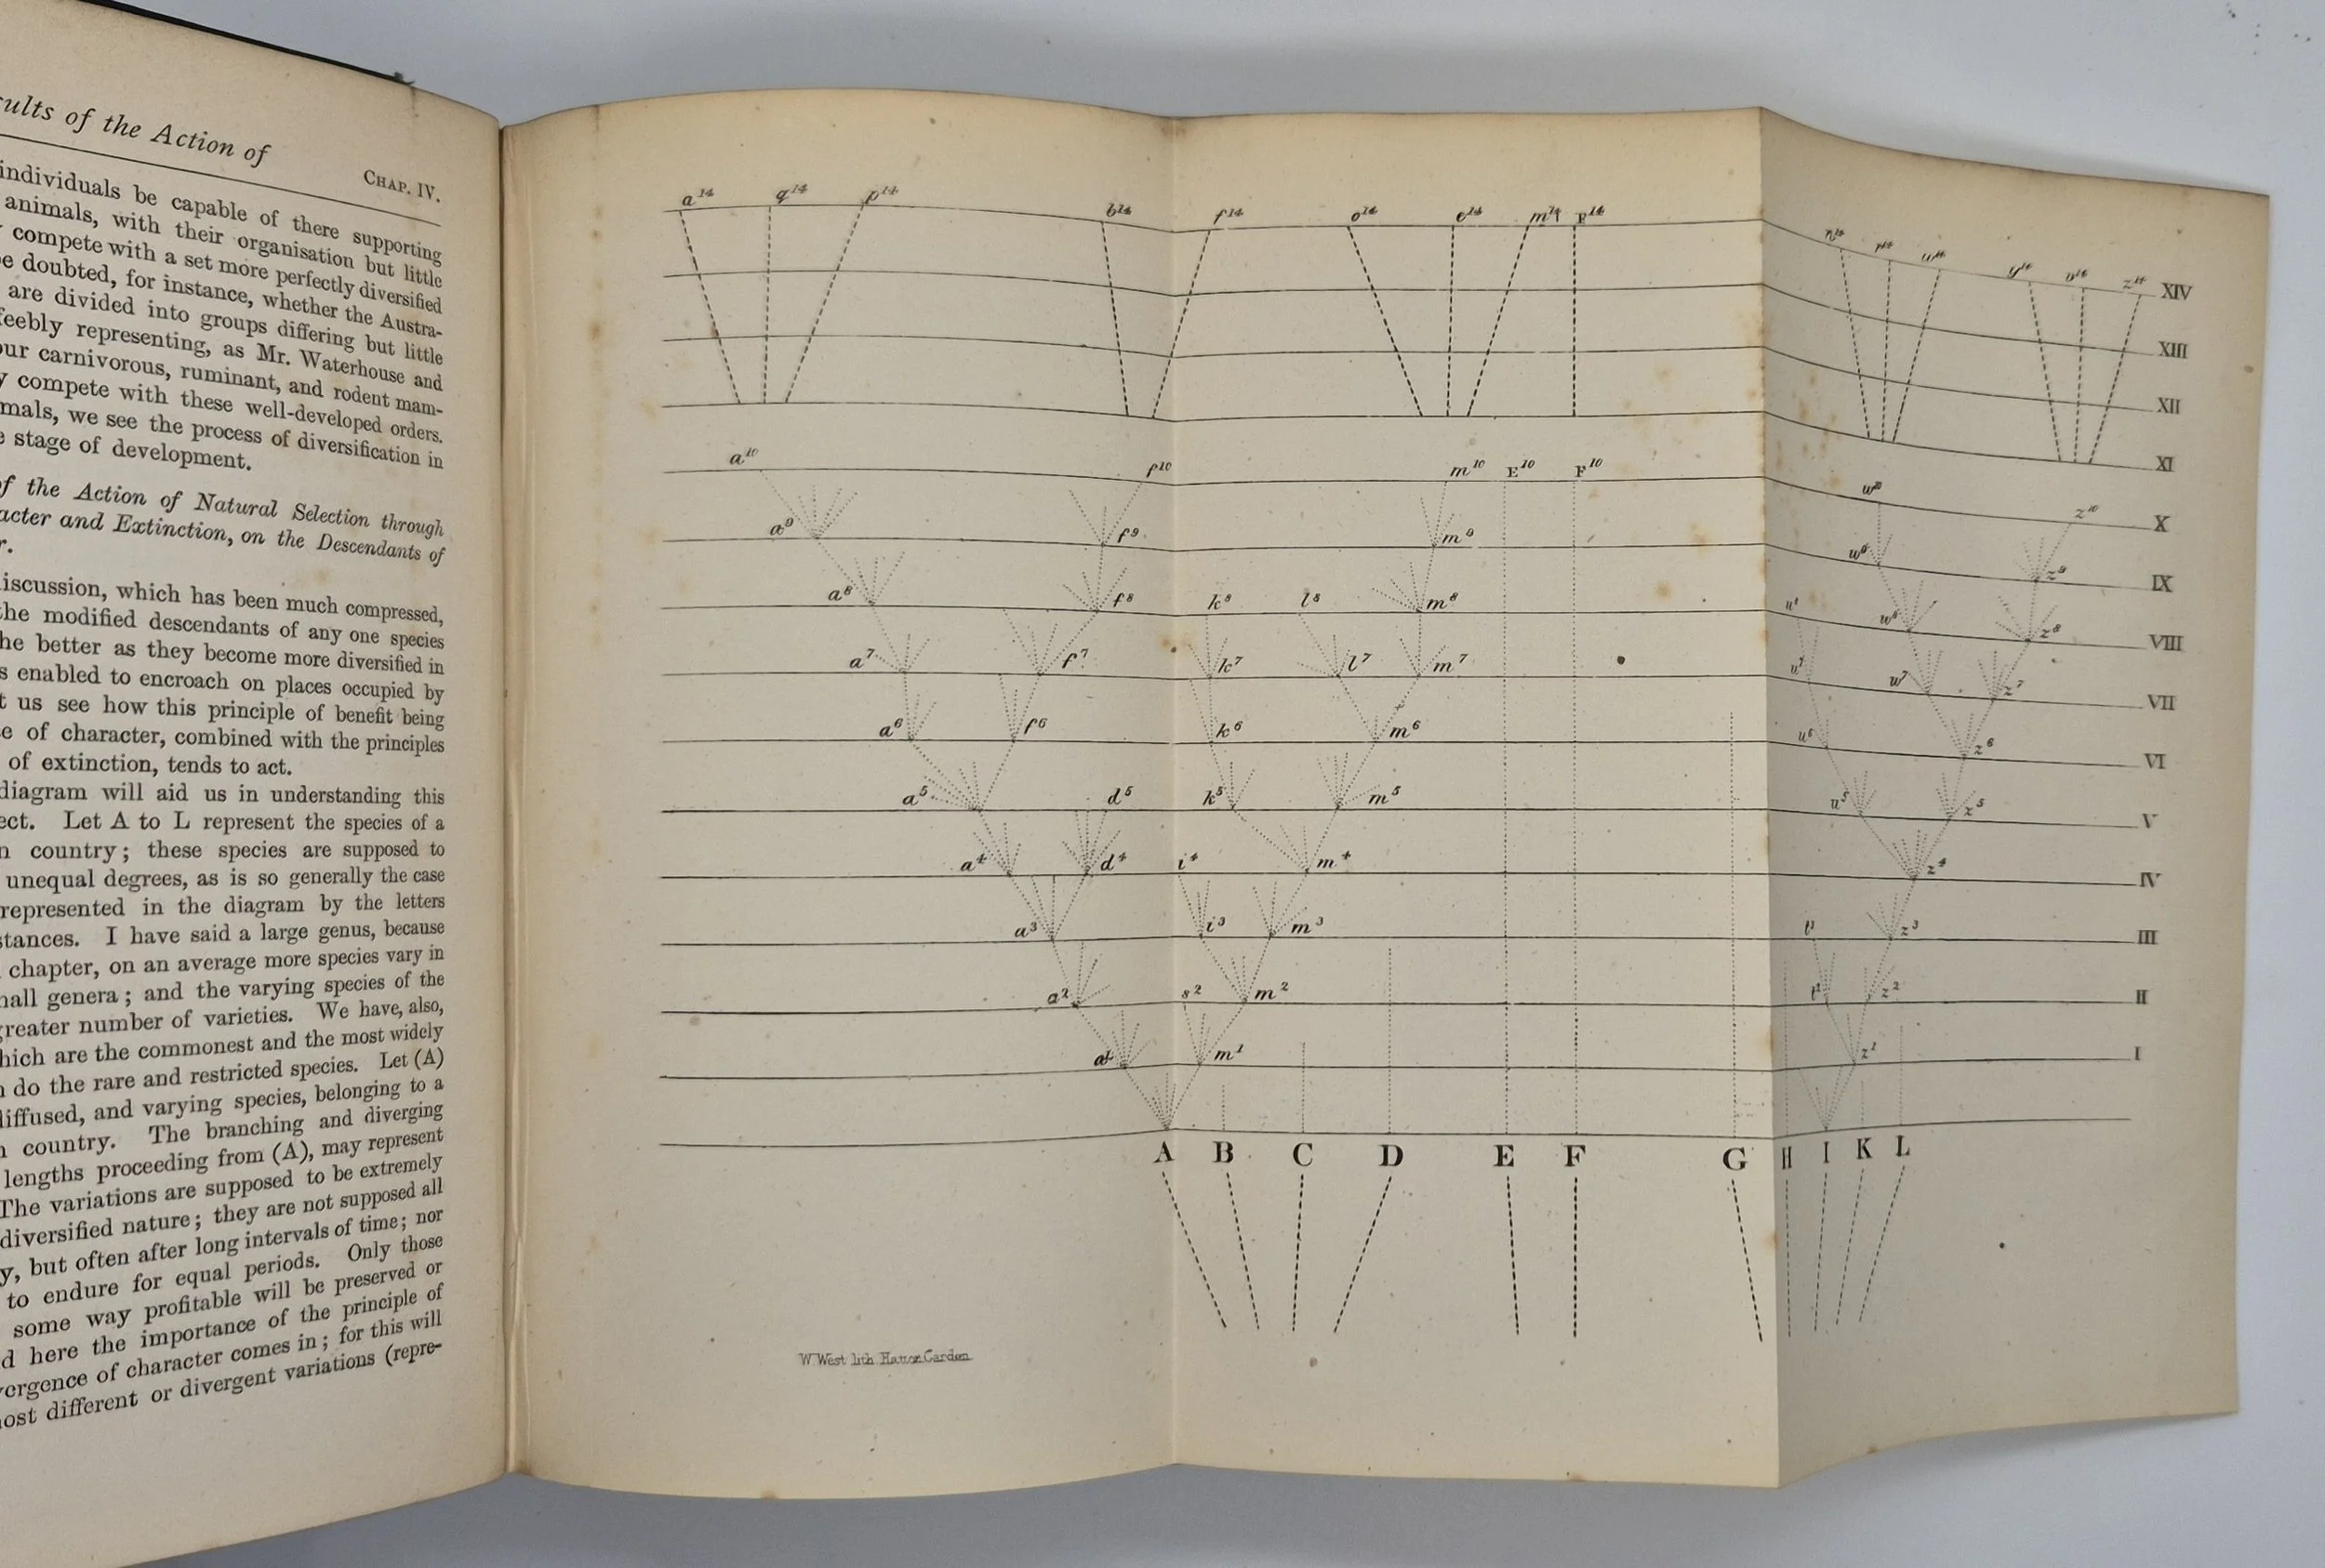 sults of the Action of
CHAP. IV.
individuals be capable of there supporting
animals, with their organisation but little
compete with a set more perfectly diversified
be doubted, for instance, whether the Austra-
are divided into groups differing but little
feebly representing, as Mr. Waterhouse and
our carnivorous, ruminant, and rodent mam-
y compete with these well-developed orders.
mals, we see the process of diversification in
e stage of development.
of the Action of Natural Selection through
acter and Extinction, on the Descendants of
r.
iscussion, which has been much compressed,
the modified descendants of any one species
he better as they become more diversified in
s enabled to encroach on places occupied by
t us see how this principle of benefit being
e of character, combined with the principles
of extinction, tends to act.
diagram will aid us in understanding this
ect. Let A to L represent the species of a
n country; these species are supposed to
unequal degrees, as is so generally the case
represented in the diagram by the letters
stances. I have said a large genus, because
chapter, on an average more species vary in
mall genera; and the varying species of the
greater number of varieties. We have, also,
hich are the commonest and the most widely
n do the rare and restricted species. Let (A)
diffused, and varying species, belonging to a
n country. The branching and diverging
lengths proceeding from (A), may represent
The variations are supposed to be extremely
diversified nature; they are not supposed all
y, but often after long intervals of time; nor
to endure for equal periods. Only those
some way profitable will be preserved or
d here the importance of the principle of
vergence of character comes in; for this will
most different or divergent variations (repre-
a14 q14 p14 b14 f14 o14 e14 m14 F14 n14 r14 w14 y14 v14 z14 XIV
XIII
XII
XI
a10 f10 m10 E10 F10 w10 z10 X
a9 f9 m9 w9 z9 IX
a8 f8 k8 l8 m8 w8 z8 VIII
a7 f7 k7 l7 m7 u7 w7 z7 VII
a6 f6 k6 m6 u6 z6 VI
a5 d5 k5 m5 u5 z5 V
a4 d4 i4 m4 z4 IV
a3 i3 m3 t3 z3 III
a2 s2 m2 t2 z2 II
a1 m1 z1 I
A B C D E F G H I K L
W. West lith. Hatton Garden